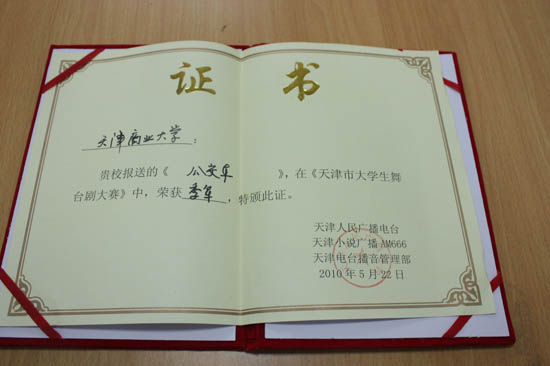 证 书
天津商业大学：
贵校报送的《 公交车 》，在《天津市大学生舞
台剧大赛》中，荣获 季军 ，特颁此证。
天津人民广播电台
天津小说广播AM666
天津电台播音管理部
2010年5月22日